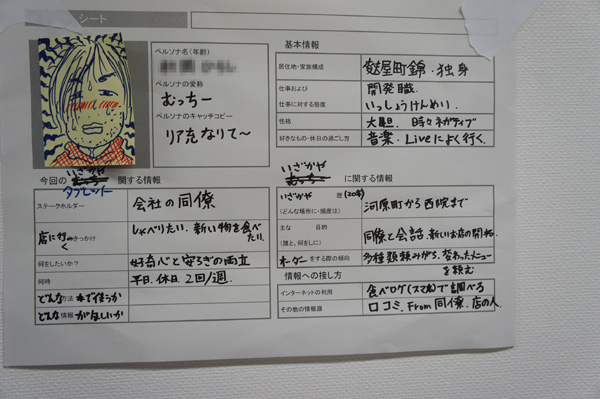 シート
ペルソナ名(年齢)
ペルソナの愛称
むっちー
ペルソナのキャッチコピー
リア充なりて〜
基本情報
居住地・家族構成
麩屋町錦・独身
仕事および
仕事に対する態度
開発職.
いっしょうけんめい.
性格
大胆. 時々ネガティブ
好きなもの・休日の過ごし方
音楽・Liveによく行く.
今回の
いざかや
タブレット
関する情報
ステークホルダー
会社の同僚
店に行く
きっかけ
しゃべりたい. 新しい物を食べ
たい.
何をしたいか?
好奇心と安らぎの両立
何時
平日. 休日. 2回/週.
どんな方法で使うか
どんな情報がほしいか
いざかや
に関する情報
いざかや
歴(20年)
(どんな場所に・頻度は)
河原町から西院まで
主な
目的
(誰と、何をしに)
同僚と会話. 新しいお店の開拓.
オーダーをする際の傾向
多種類頼みがち、変わったメニュー
を頼む
情報への接し方
インターネットの利用
食べログ(スマホ)で調べる
その他の情報源
口コミ. From 同僚. 店の人.